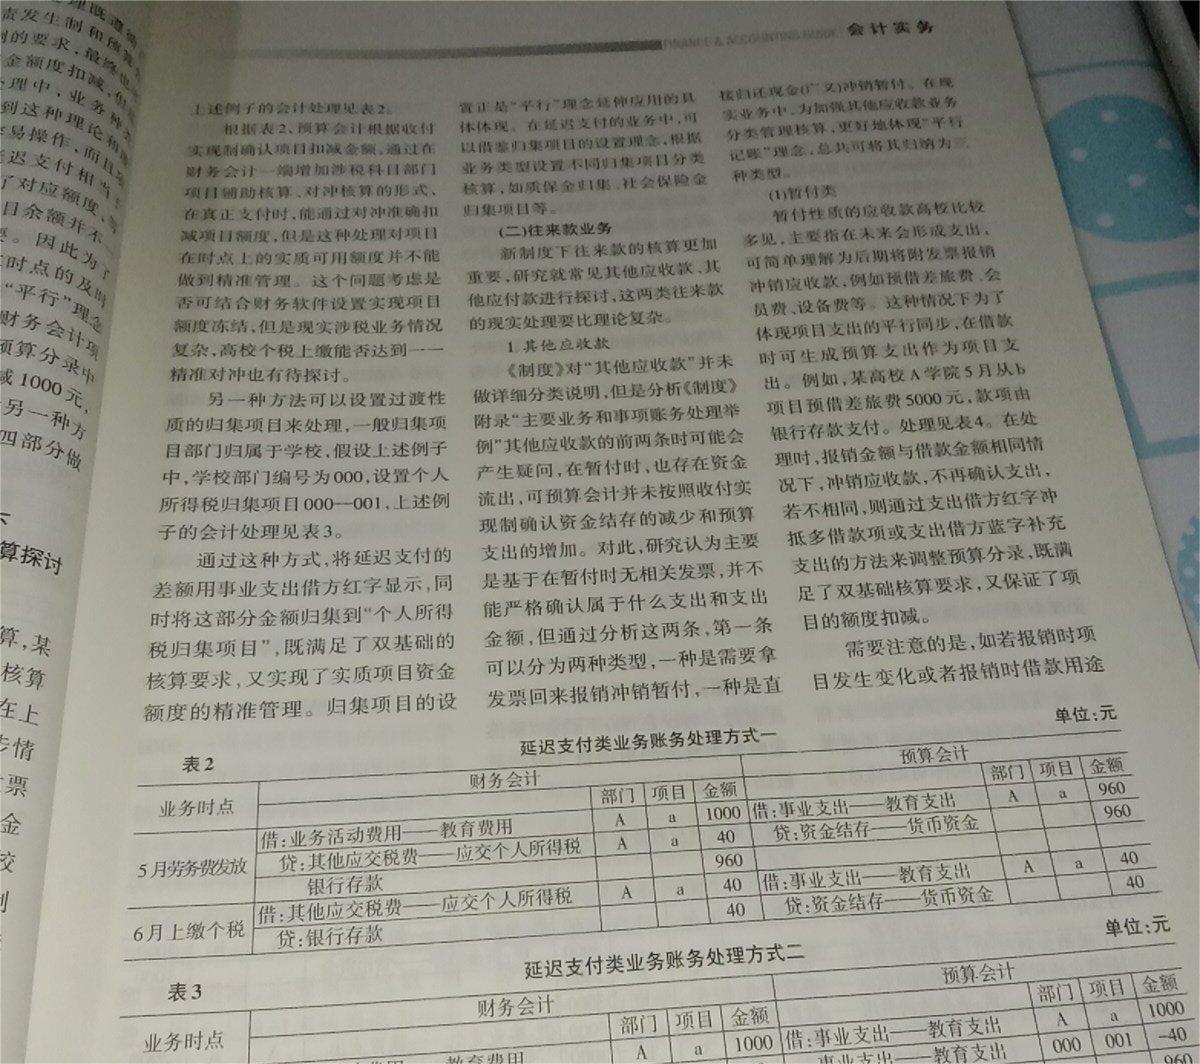 理既遵循
责发生制和预算
制的要求，最终也
金额度扣减，但
处理中，业务种类
到这种理论和
易操作，而且
延迟支付相当于
了对应额度，等
目余额并不
要。因此为了
时点的及时
“平行”理念
财务会计项
预算分录中
减1000元，
另一种方
四部分做
算探讨
算，某
核算
在上
步情
票
金
校
FINANCE & ACCOUNTING GUIDE 会计实务
上述例子的会计处理见表2。
根据表2，预算会计根据收付
实现制确认项目扣减金额，通过在
财务会计一端增加涉税科目部门
项目辅助核算、对冲核算的形式，
在真正支付时，能通过对冲准确扣
减项目额度，但是这种处理对项目
在时点上的实质可用额度并不能
做到精准管理。这个问题考虑是
否可结合财务软件设置实现项目
额度冻结，但是现实涉税业务情况
复杂，高校个税上缴能否达到一一
精准对冲也有待探讨。
另一种方法可以设置过渡性
质的归集项目来处理，一般归集项
目部门归属于学校，假设上述例子
中，学校部门编号为000，设置个人
所得税归集项目000—001，上述例
子的会计处理见表3。
通过这种方式，将延迟支付的
差额用事业支出借方红字显示，同
时将这部分金额归集到“个人所得
税归集项目”，既满足了双基础的
核算要求，又实现了实质项目资金
额度的精准管理。归集项目的设
置正是“平行”理念延伸应用的具
体体现。在延迟支付的业务中，可
以借鉴归集项目的设置理念，根据
业务类型设置不同归集项目分类
核算，如质保金归集、社会保险金
归集项目等。
(二)往来款业务
新制度下往来款的核算更加
重要，研究就常见其他应收款、其
他应付款进行探讨，这两类往来款
的现实处理要比理论复杂。
1.其他应收款
《制度》对“其他应收款”并未
做详细分类说明，但是分析《制度》
附录“主要业务和事项账务处理举
例”其他应收款的前两条时可能会
产生疑问，在暂付时，也存在资金
流出，可预算会计并未按照收付实
现制确认资金结存的减少和预算
支出的增加。对此，研究认为主要
是基于在暂付时无相关发票，并不
能严格确认属于什么支出和支出
金额，但通过分析这两条，第一条
可以分为两种类型，一种是需要拿
发票回来报销冲销暂付，一种是直
接归还现金(广义)冲销暂付。在现
实业务中，为加强其他应收款业务
分类管理核算，更好地体现“平行
记账”理念，总共可将其归纳为三
种类型。
(1)暂付类
暂付性质的应收款高校比较
多见，主要指在未来会形成支出，
可简单理解为后期将附发票报销
冲销应收款，例如预借差旅费、会
员费、设备费等。这种情况下为了
体现项目支出的平行同步，在借款
时可生成预算支出作为项目支
出。例如，某高校A学院5月从b
项目预借差旅费5000元，款项由
银行存款支付。处理见表4。在处
理时，报销金额与借款金额相同情
况下，冲销应收款，不再确认支出，
若不相同，则通过支出借方红字冲
抵多借款项或支出借方蓝字补充
支出的方法来调整预算分录，既满
足了双基础核算要求，又保证了项
目的额度扣减。
需要注意的是，如若报销时项
目发生变化或者报销时借款用途
表2 延迟支付类业务账务处理方式一 单位：元
业务时点 财务会计 预算会计
部门 项目 金额 部门 项目 金额
5月劳务费发放 借：业务活动费用——教育费用 A a 1000 借：事业支出——教育支出 A a 960
贷：其他应交税费——应交个人所得税 A a 40 贷：资金结存——货币资金 960
银行存款 960
6月上缴个税 借：其他应交税费——应交个人所得税 A a 40 借：事业支出——教育支出 A a 40
贷：银行存款 40 贷：资金结存——货币资金 40
表3 延迟支付类业务账务处理方式二 单位：元
业务时点 财务会计 预算会计
部门 项目 金额 部门 项目 金额
教育费用 A a 1000 借：事业支出——教育支出 A a 1000
事业支出——教育支出 000 001 -40
960